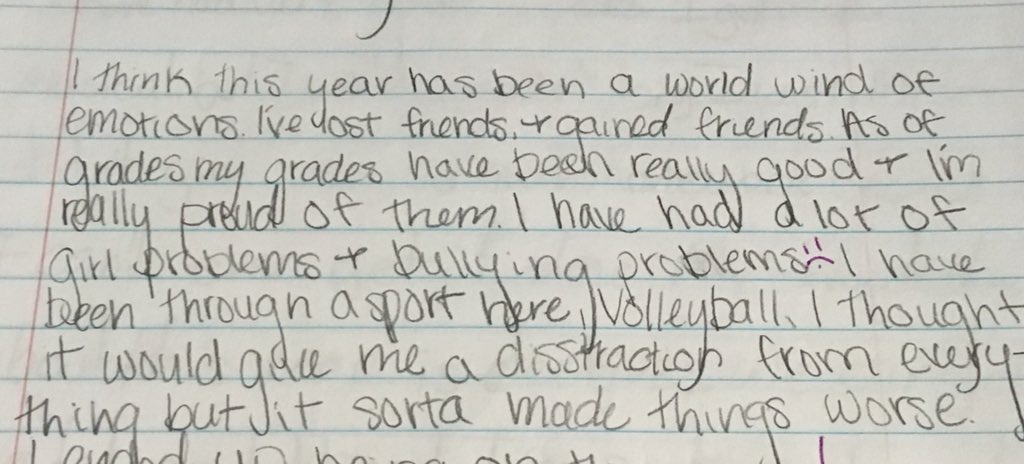 I think this year has been a world wind of
emotions. I've lost friends, + gained friends. As of
grades my grades have been really good + I'm
really proud of them. I have had a lot of
girl problems + bullying problems :( I have
been through a sport here, Volleyball. I thought
it would gave me a disstraction from every-
thing but it sorta made things worse.
I ended up being on